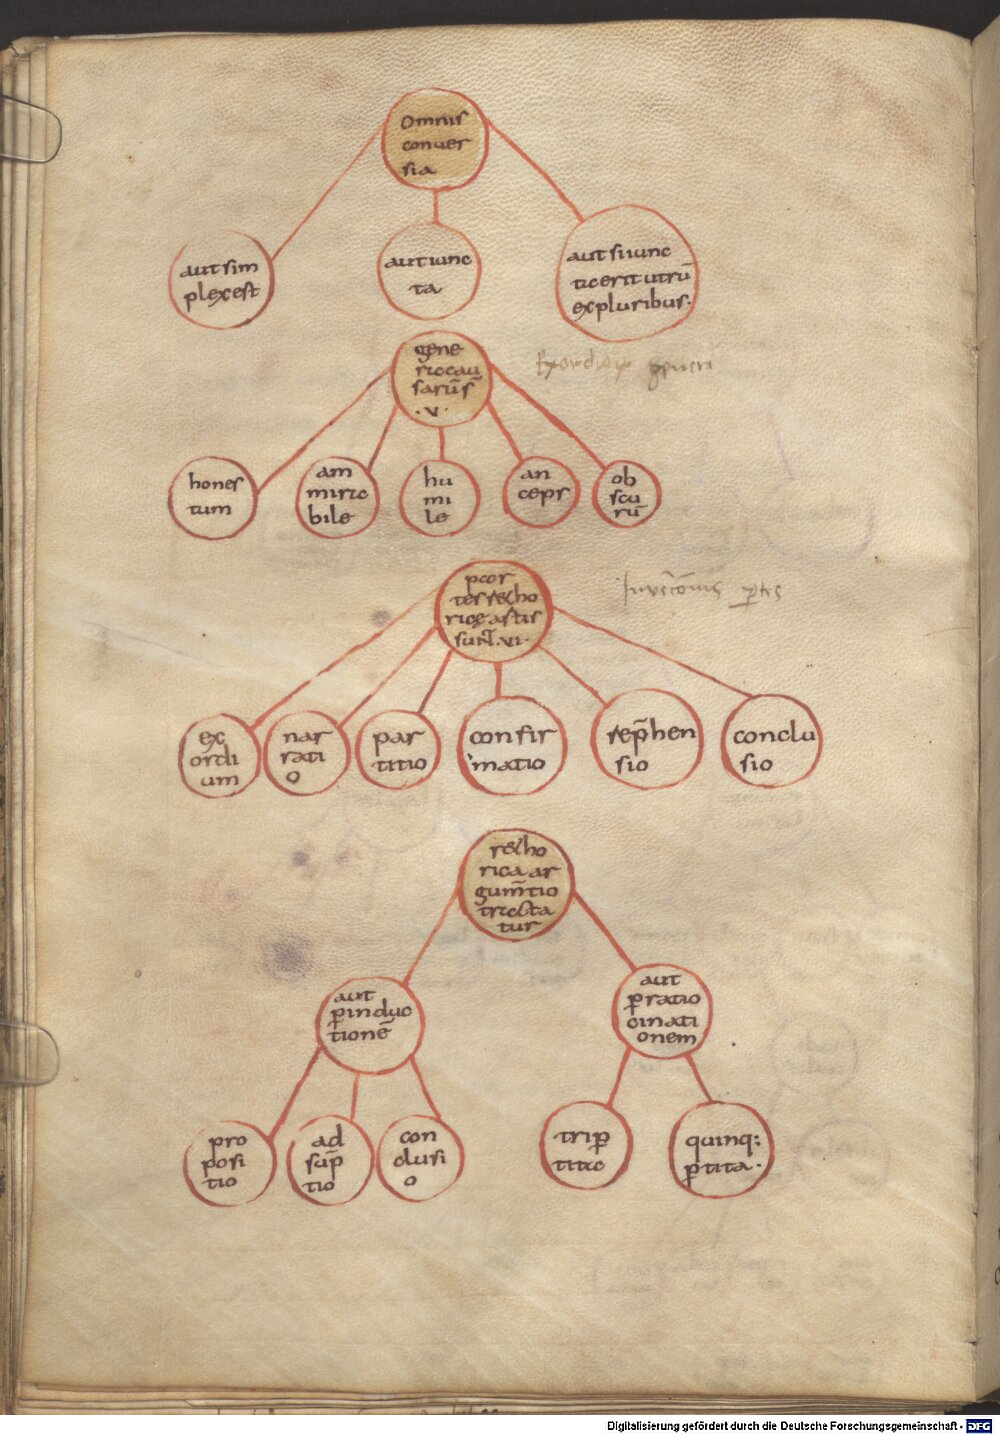 Omnis
conuer
sia
aut sim
plex est
aut iunc
ta
aut si iunc
ta erit utrū
ex pluribus.
gene
ra cau
sarū s̄
.v.
hones
tum
am
mira
bile
hu
mi
le
an
ceps
ob
scu
rū
Exordiorum genera
par
tes retho
rice artis
sunt .vi.
Inventionis partes
ex
ordi
um
nar
rati
o
par
titio
confir
matio
rep̄hen
sio
conclu
sio
retho
rica ar
gum̄tio
tracta
tur
aut
ꝑ induc
tionē
aut
ꝑ ratio
cinati
onem
pro
positi
tio
ad
sūp
tio
con
clusi
o
triꝑ
tita
quinq;
ꝑtita.
Digitalisierung gefördert durch die Deutsche Forschungsgemeinschaft - DFG